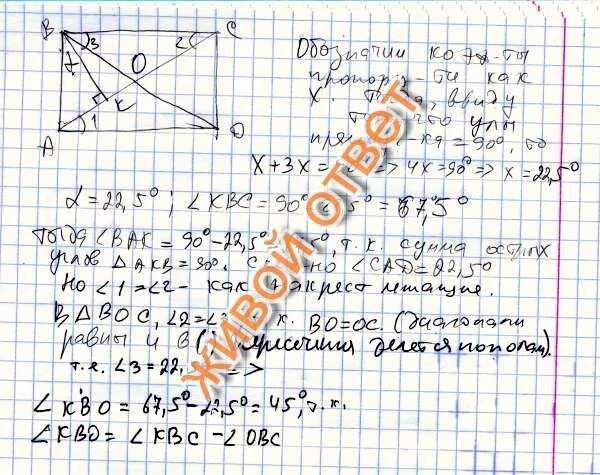 B
C
3
2
O
K
1
A
D
Обозначим
пропорц-ти как
X.
ввиду
что углы
= 90°, то
X + 3X = => 4X = 90° => X = 22,5°
α = 22,5°; ∠KBC = 90° 5° = 67,5°
Тогда ∠BAK = 90° - 22,5° 5°, т.к. сумма острых
углов △AKB = 90°. но ∠CAD = 22,5°
Но ∠1 = ∠2 - как накрест лежащие.
В △BOC, ∠2 = ∠ к. BO = OC. (диагонали
равны и в пересечения делятся пополам).
т.е. ∠3 = 22, =>
∠KBO = 67,5° - 22,5° = 45°, т.к.
∠KBO = ∠KBC - ∠OBC
ЖИВОЙ ОТВЕТ